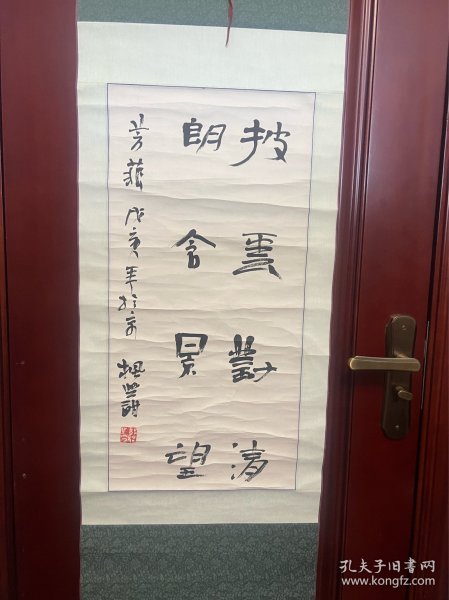 披雲對清
朗含景望
芳蕤
年於京
孔夫子旧书网
www.kongfz.com